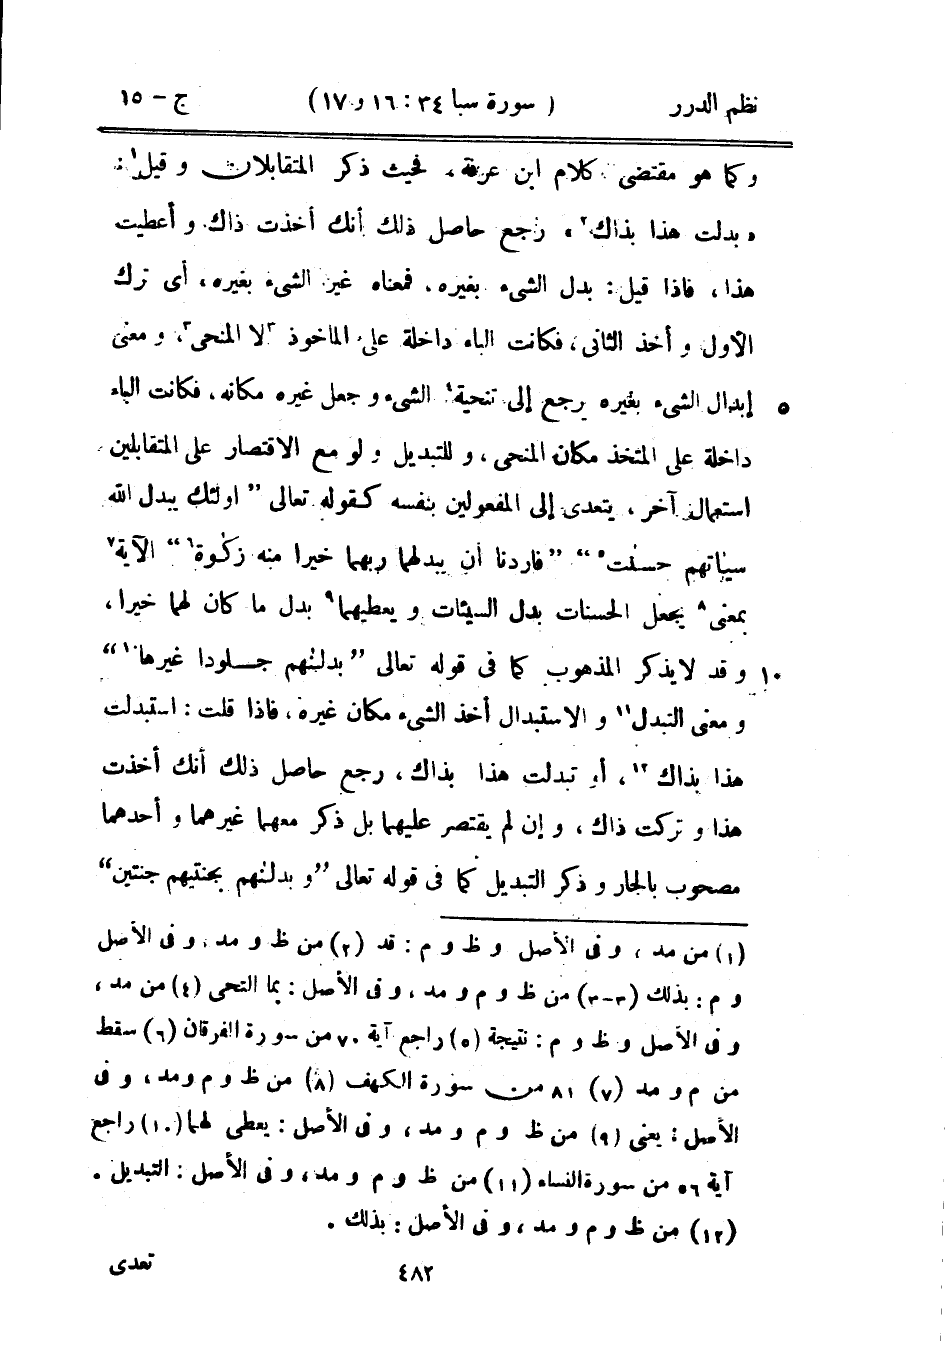 نظم الدرر ( سورة سبا ٣٤ : ١٦ و ١٧ ) ج – ١٥
وكما هو مقتضى كلام ابن عرفة، فحيث ذكر المتقابلان و قيل١ :
« بدلت هذا بذاك٢ » رجع حاصل ذلك أنك أخذت ذاك و أعطيت
هذا ، فاذا قيل : بدل الشىء بغيره، فمعناه غير الشىء بغيره، أى ترك
الأول و أخذ الثانى، فكانت الباء داخلة على الماخوذ ٣لا المنحى٣، و معنى
٥ إبدال الشىء بغيره يرجع إلى تنحية٤ الشىء و جعل غيره مكانه، فكانت الباء
داخلة على المتخذ مكان المنحى، و للتبديل و لو مع الاقتصار على المتقابلين
استعمال آخر ، يتعدى إلى المفعولين بنفسه كقوله تعالى ” اولئك يبدل الله
سياٰتهم حسنٰت٥ “ ” فاردنا أن يبدلهما ربهما خيرا منه زكٰوة٦ “ الآية٧
بمعنى٨ يجعل الحسنات بدل السيئات و يعطيهما٩ بدل ما كان لهما خيرا،
١٠ و قد لا يذكر المذهوب كما فى قوله تعالى ” بدلنٰهم جلودا غيرها١٠ “
و معنى التبدل١١ و الاستبدال أخذ الشىء مكان غيره، فاذا قلت : استبدلت
هذا بذاك١٢ ، أو تبدلت هذا بذاك ، رجع حاصل ذلك أنك أخذت
هذا و تركت ذاك ، و إن لم يقتصر عليهما بل ذكر معهما غيرهما و أحدهما
مصحوب بالجار و ذكر التبديل كما فى قوله تعالى ” و بدلنٰهم بجنتيهم جنتين “
(١) من مد ، و فى الأصل و ظ و م : قد (٢) من ظ و مد، و فى الأصل
و م : بذلك (٣–٣) من ظ و م و مد، و فى الأصل : بما التحى (٤) من مد،
و فى الأصل و ظ و م : نتيجة (٥) راجع آية ٧٠ من سورة الفرقان (٦) سقط
من م و مد (٧) ٨١ من سورة الكهف (٨) من ظ و م و مد، و فى
الأصل : يعنى (٩) من ظ و م و مد، و فى الأصل : يعطى لهما (١٠) راجع
آية ٥٦ من سورة النساء (١١) من ظ و م و مد، و فى الأصل : التبديل .
(١٢) من ظ و م و مد، و فى الأصل : بذلك .
تعدى
٤٨٢